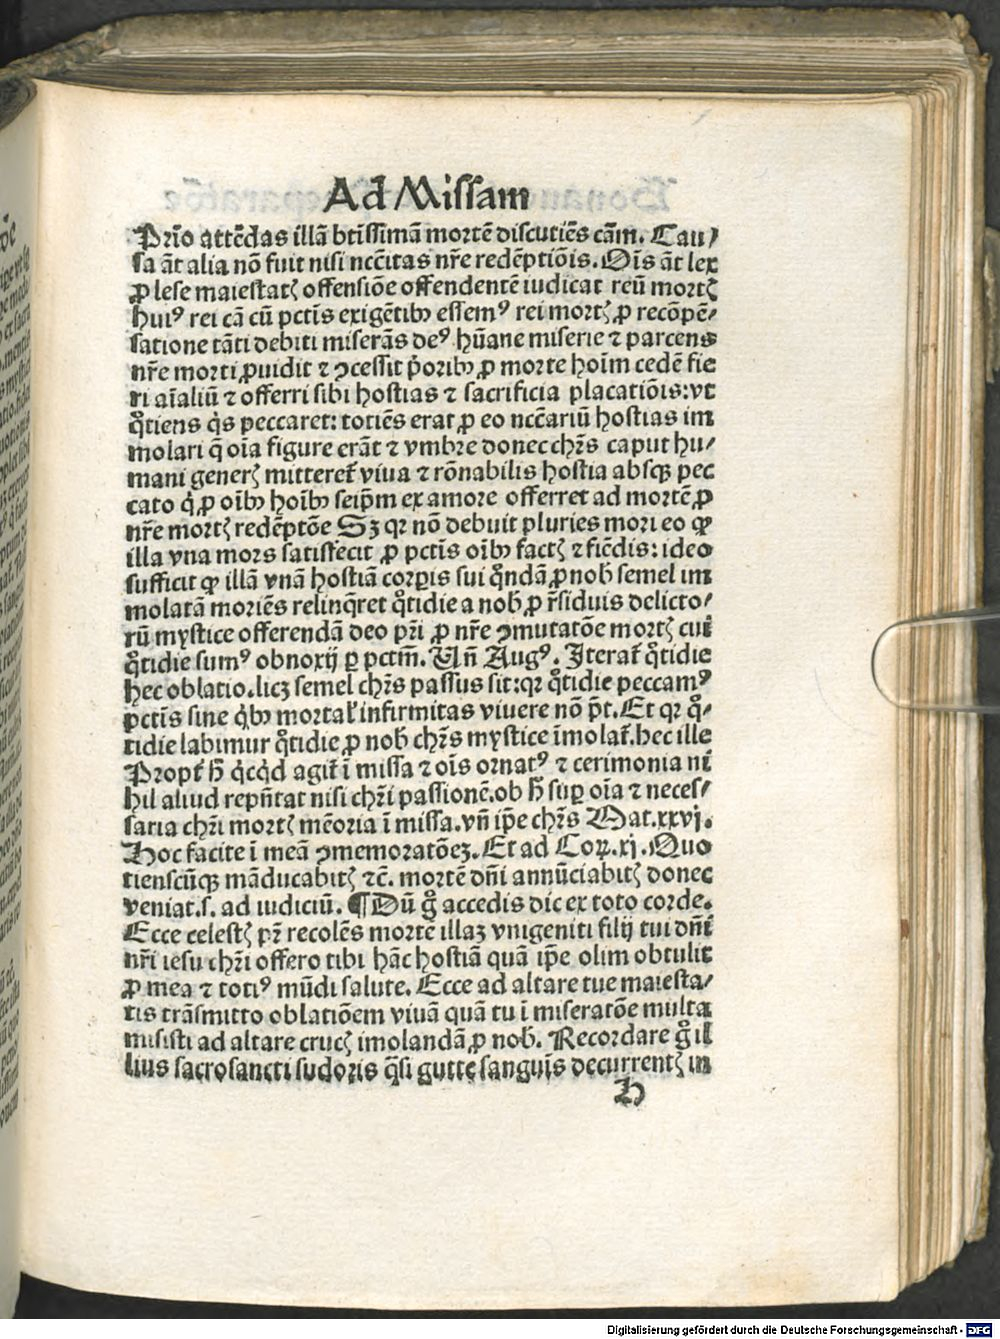 Ad Missam
Prīo attēdas illā btīssimā mortē discutiēs cām. Cau⸗
sa āt alia nō fuit nisi nccītas nr̄e redēptiōis. Oīs āt lex
ꝓ lese maiestatꝭ offensiōe offendentē iudicat reū mortꝭ
huiꝰ rei cā cū pctīs exigētibꝫ essemꝰ rei mortꝭ ꝓ recōpē⸗
satione tāti debiti miserās deꝰ hūane miserie ⁊ parcens
nr̄e morti ꝓuidit ⁊ ꝯcessit p̄oribꝫ ꝓ morte hoīm cedē fie
ri aīaliū ⁊ offerri sibi hostias ⁊ sacrificia placatiōis: vt
q̊tiens q̇s peccaret: totiēs erat ꝓ eo nccāriū hostias im
molari q̄ oīa figure erāt ⁊ vmbre donec chr̄s caput hu⸗
mani generꝭ mitteret̄ viua ⁊ rōnabilis hostia absqꝫ pec
cato q̇ ꝓ oībꝫ hoībꝫ seip̄m ex amore offerret ad mortē ꝓ
nr̄e mortꝭ redēptōe Sꝫ qꝛ nō debuit pluries mori eo ꝙ
illa vna mors satisfecit ꝓ pctīs oībꝫ factꝭ ⁊ fiēdis: ideo
sufficit ꝙ illā vnā hostiā corꝑis sui q̊ndā ꝓ nob̄ semel im
molatā moriēs relinq̄ret q̊tidie a nob̄ ꝓ r̄siduis delicto⸗
rū mystice offerendā deo pr̄i ꝓ nr̄e ꝯmutatōe mortꝭ cui
q̊tidie sumꝰ obnoxij ꝑ pctm̄. Vn̄ Augꝰ. Iterat̄ q̊tidie
hec oblatio. licꝫ semel chr̄s passus sit: qꝛ q̊tidie peccamꝰ
pctīs sine q̇bꝫ mortal̓ infirmitas viuere nō p̄t. Et qꝛ q̊⸗
tidie labimur q̊tidie ꝓ nob̄ chr̄s mystice īmolat̄. hec ille
Propt̄ h̄ q̇cq̇d agit̄ ī missa ⁊ oīs ornatꝰ ⁊ cerimonia ni
hil aliud repn̄tat nisi chr̄i passionē. ob h̄ suꝑ oīa ⁊ neces⸗
saria chr̄i mortꝭ mēoria ī missa. vn̄ ip̄e chr̄s Mat. xxvj.
Hoc facite ī meā ꝯmemoratōeꝫ. Et ad Coꝝ. xj. Quo
tienscūqꝫ māducabitꝭ ⁊c̄. mortē dn̄i annūciabitꝭ donec
veniat. s. ad iudiciū. ¶ Dū g̊ accedis dic ex toto corde.
Ecce celestꝭ pr̄ recolēs mortē illaꝫ vnigeniti filij tui dn̄i
nr̄i iesu chr̄i offero tibi hāc hostiā quā ip̄e olim obtulit
ꝓ mea ⁊ totiꝰ mūdi salute. Ecce ad altare tue maiesta⸗
tis trāsmitto oblatiōem viuā quā tu ī miseratōe multa
misisti ad altare crucꝭ imolandā ꝓ nob̄. Recordare g̊ il
lius sacrosancti sudoris q̄si gutte sanguīs decurrentꝭ in
H
Digitalisierung gefördert durch die Deutsche Forschungsgemeinschaft - DFG